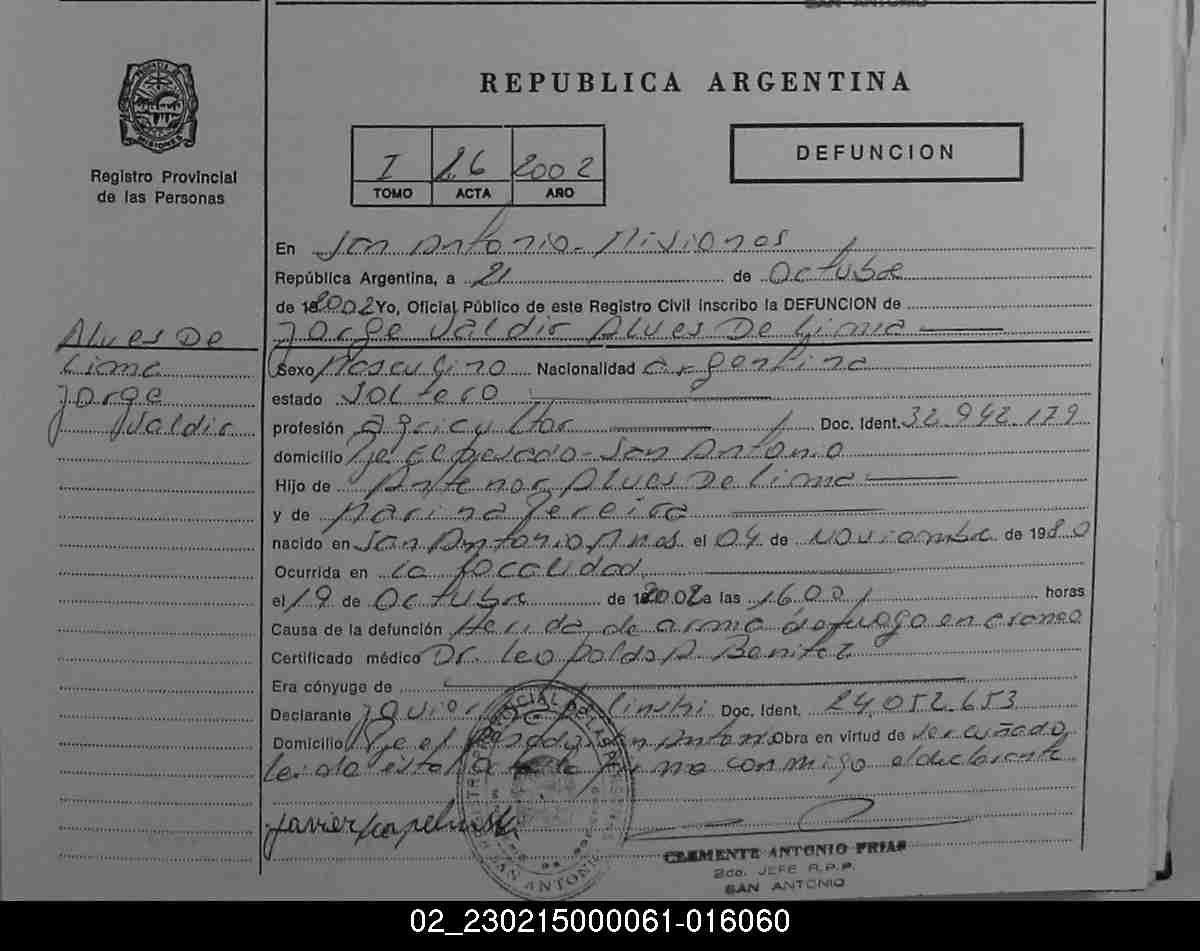 SAN ANTONIO
REPUBLICA ARGENTINA
PROVINCIA DE
MISIONES
Registro Provincial
de las Personas
I 26 2002
TOMO ACTA AÑO
DEFUNCION
En San Antonio - Misiones
República Argentina, a 21 de Octubre
de 2002 Yo, Oficial Público de este Registro Civil inscribo la DEFUNCION de
Jorge Valdir Alves De Lima
Alves De
Lima
Jorge
Valdir
Sexo Masculino Nacionalidad argentina
estado Soltero
profesión agricultor Doc. Ident. 32.942.179
domicilio San Antonio
Hijo de Antenor Alves De Lima
y de Marina Pereira
nacido en San Antonio Mnes el 04 de Noviembre de 1980
Ocurrida en la localidad
el 19 de Octubre de 2002 a las 16.00 horas
Causa de la defunción Herida de arma de fuego en craneo
Certificado médico Dr. Leopoldo A. Benitez
Era cónyuge de
Declarante Javier Doc. Ident. 24.052.653
Domicilio San Antonio Obra en virtud de ser cuñado
leida esta acta la firma conmigo el declarante
Javier
SAN ANTONIO
CLEMENTE ANTONIO FRIAS
2do. JEFE R.P.P.
SAN ANTONIO
02_230215000061-016060